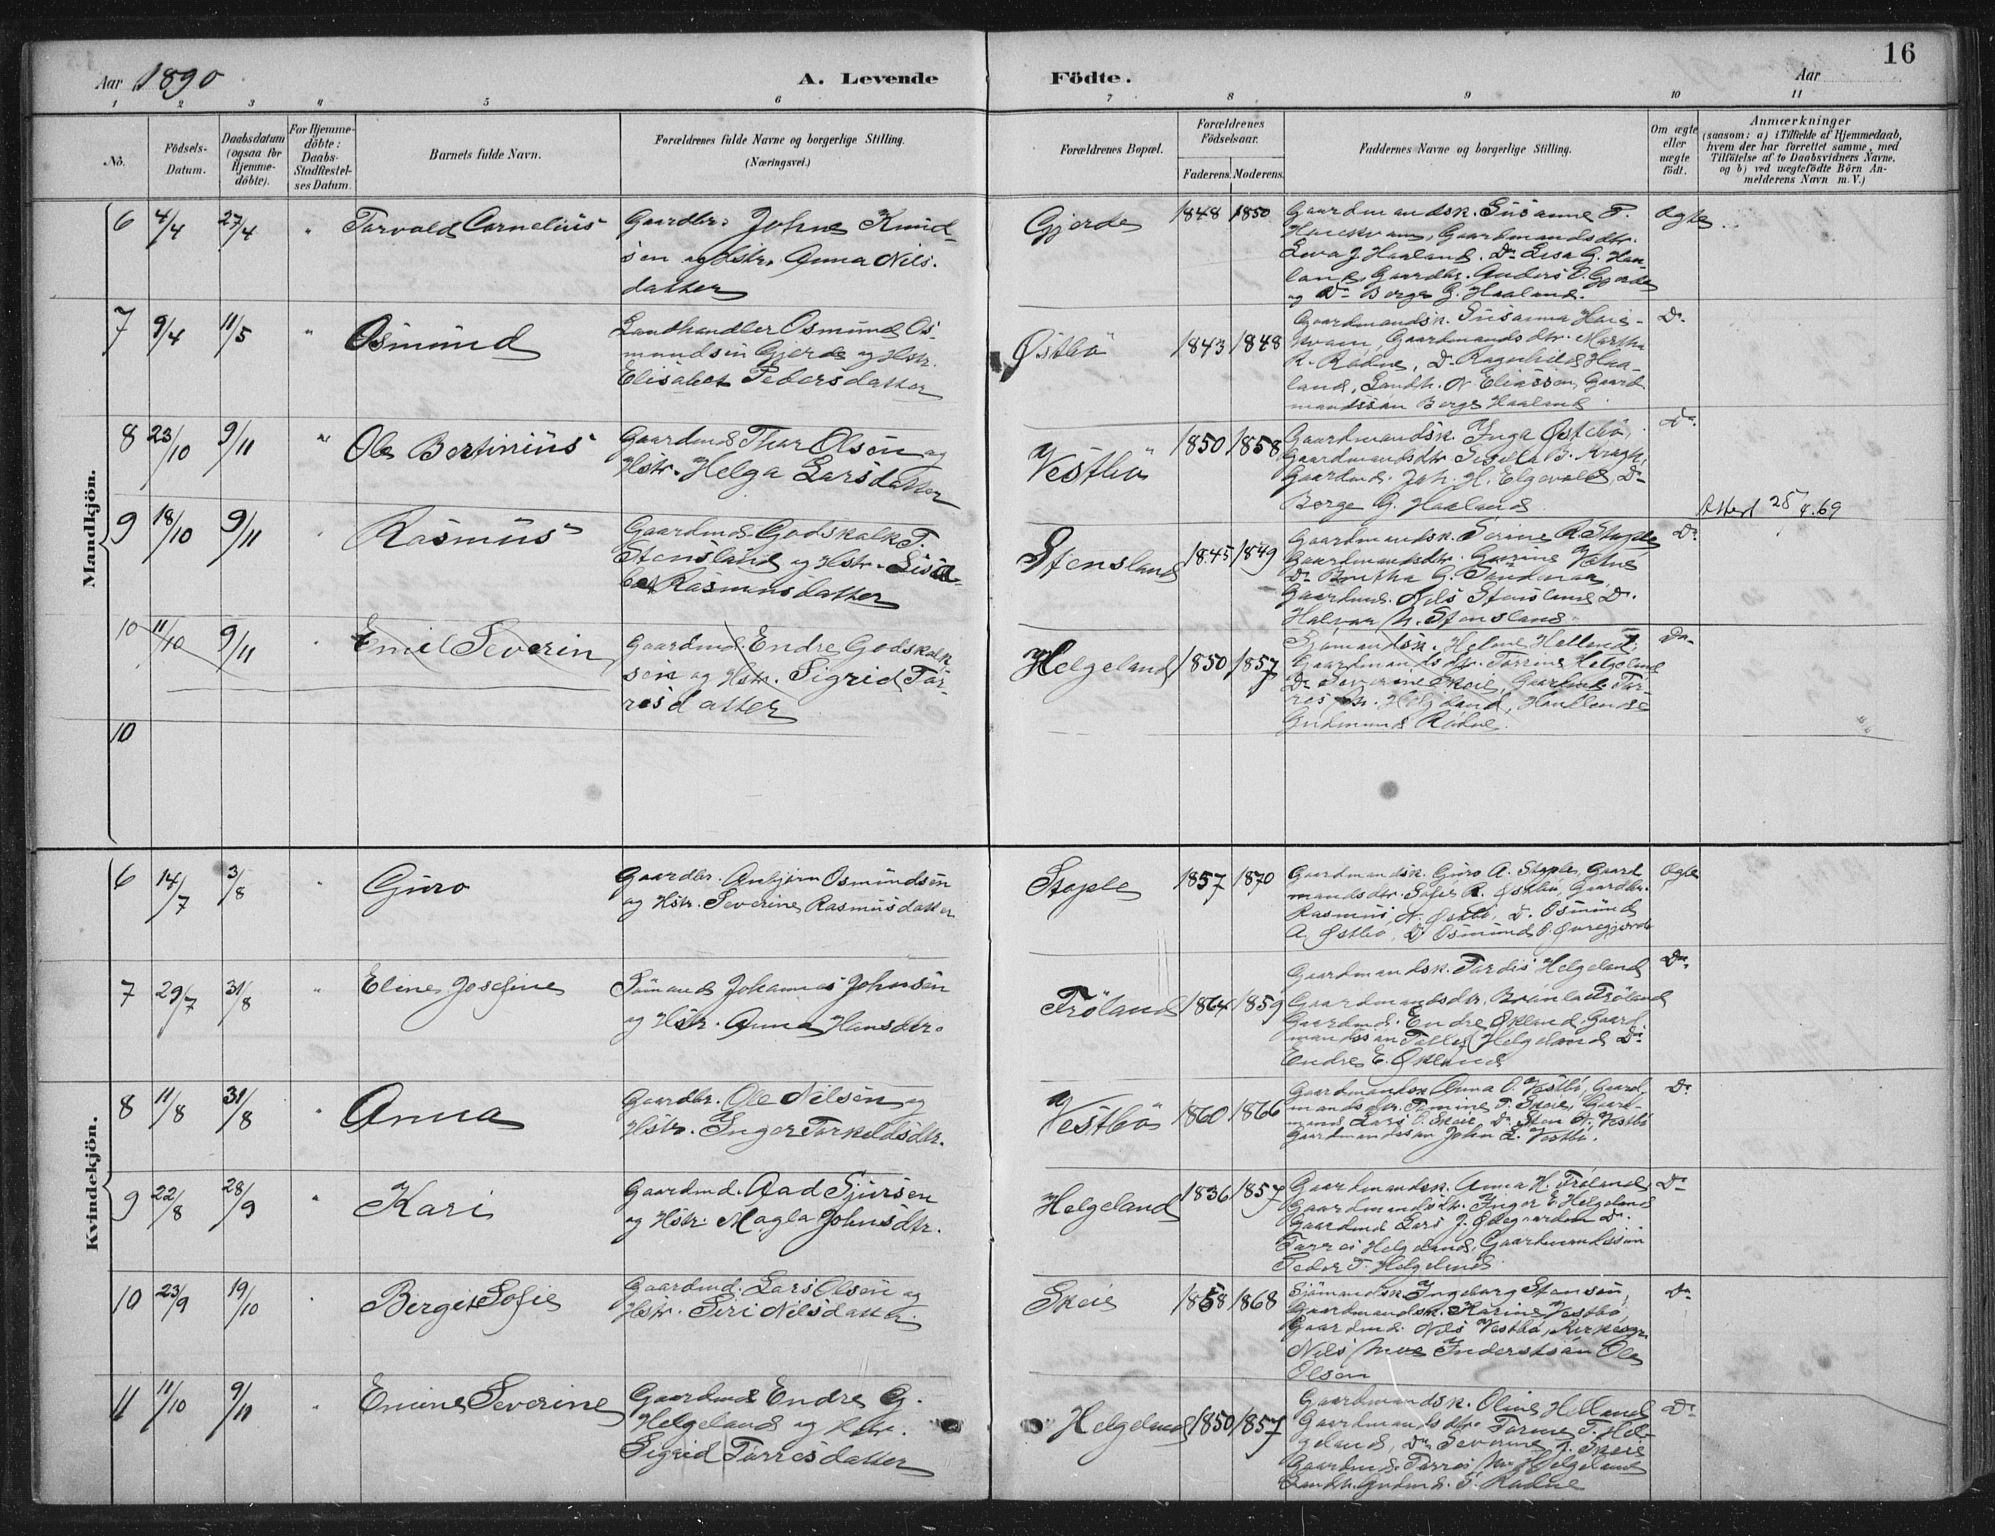 16
Aar 1890
A. Levende Födte.
Aar
1 2 3 4 5 6 7 8 9 10 11
No.
Födsels-
Datum.
Daabsdatum
(ogsaa for
Hjemme-
döbte).
For Hjemme-
döbte:
Daabs-
Stadfæstel-
ses Datum.
Barnets fulde Navn.
Forældrenes fulde Navne og borgerlige Stilling.
(Næringsvei.)
Forældrenes Bopæl.
Forældrenes
Födselsaar.
Faderens. Moderens.
Faddernes Navne og borgerlige Stilling.
Om ægte
eller
uægte
födt.
Anmærkninger
(saasom: a) i Tilfælde af Hjemmedaab,
hvem der har forrettet samme, med
Tilföielse af to Daabsvidners Navne.
og b) ved uægtefödte Börn An-
melderens Navn m. V.)
Mandkjön.
6 4/4 27/4 " Torvald Cornelius
Gaardbr. Johns Knud-
sen og Hstr. Anna Nils-
datter
Gjerde 1848 1850
Gaardmandsk. Susanne T.
Gaardmandsdtr.
J. Haaland. Do Lisa G. Haa-
land, Gaardbr. Anders O. Gjerde
og Do Borge G. Haaland.
Ægte
7 9/4 11/5 " Osmund
Landhandler Osmund Os-
mundsen Gjerde og Hstr.
Elisabet Pedersdatter
Östbö 1843 1848
Gaardmandsk. Susanna
Gaardmandsdtr. Martha
R. Rödne, Do Ragnhild Haa-
land, Landh. N. Eliassen, Gaard-
mandssön Borge Haaland
Do
8 23/10 9/11 " Ole Bertinius
Gaardmd. Thor Olsen og
Hstr. Helga Larsdatter
Vestbö 1850 1858
Gaardmandsk. Inga Östebö,
Gaardmandsdtr. B.
Gaardmd. Joh. H. Elgevold, Do
Borge G. Haaland
Do
9 18/10 9/11 " Rasmus
Gaardmd. Godskalk T.
Stensland og Hstr. Lisa-
bet Rasmusdatter
Stensland 1845 1849
Gaardmandsk. Serine R.
Gaardmandsdtr. Gurine
Do Bertha G.
Gaardmd. Nils Stensland Do.
Halvor N. Stensland.
Do
Attest 25/4.69
10 11/10 9/11 " Emil Severin
Gaardmd. Endre Godskalk-
sen og Hstr. Sigrid Tor-
resdatter
Helgeland 1850 1857
Sjömandsk. Helland,
Gaardmandsdtr. Torrine Helgeland
Do Severine Skeie, Gaardmd. Tor-
res Helgeland,
Gudmund Rödne.
Do
10
Kvindekjön.
6 14/7 3/8 " Guro
Gaardbr. Anbjörn Osmundsen
og Hstr. Severine Rasmusdatter
Stople 1857 1870
Gaardmandsk. Guro A. Stople, Gaard-
mandsdtr. Sofie R. Östbö, Gaardbr.
Rasmus N. Östbö, Do. Osmund
A. Östbö, Do Osmund O.
Ægte
7 29/7 31/8 " Eline Josefine
Sömand Johannes Johnsen
og Hstr. Anna Hansdtr.
Fröland 1864 1859
Gaardmandsk. Tordis Helgeland
Gaardmandsdtr. Fröland
Gaardmd. Endre Ökland, Gaard-
mandssön Helgeland Do
Endre E. Ökland
Do
8 11/8 31/8 " Anna
Gaardbr. Ole Nilsen og
Hstr. Inger Torkildsdtr.
Vestbö 1860 1866
Gaardmandsk. Anna O. Vestbö, Gaard-
mandsdtr. T. Skeie, Gaard-
mand Lars O. Skeie, Do Sten N. Vestbö
Gaardmandssön John L. Vestbö.
Do
9 22/8 28/9 " Kari
Gaardmd. Aad Sjursen
og Hstr. Magla Johnsdtr.
Helgeland 1836 1857
Gaardmandsk. Anna H. Fröland
Gaardmandsdtr. Inger E. Helgeland
Gaardmd. Lars J. Ödegaarden Do.
Torres Helgeland, Gaardmandssön
Peder T. Helgeland
Do
10 23/9 19/10 " Bergit Sofie
Gaardmd. Lars Olsen og
Hstr. Siri Nilsdatter
Skeie 1858 1868
Sjömandsk. Ingeborg Stensön,
Gaardmandsk. Karine Vestbö,
Gaardmd. Nils Vestbö, Kirkesgr.
Nils Moe Inderstsön Ole
Olsen
Do
11 11/10 9/11 " Emine Severine
Gaardmd. Endre G.
Helgeland og Hstr.
Sigrid Torresdatter
Helgeland 1850 1857
Gaardmandsk. Oline Helland
Gaardmandsdtr. Torrine T. Hel-
geland, Do Severine Skeie
Gaardmd. Torres Helgeland
Landh. Gudmd. T. Rödne
Do